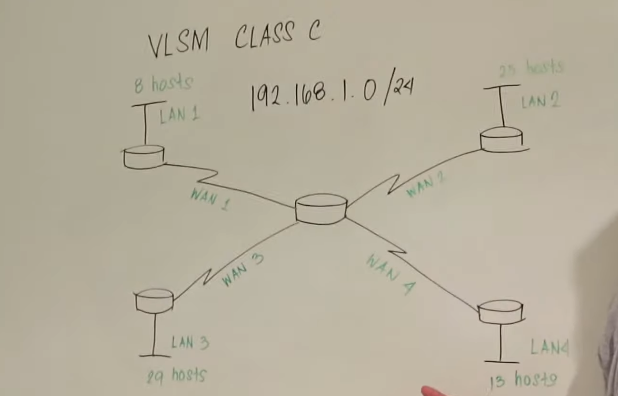 VLSM CLASS C
192.168.1.0/24
8 hosts
LAN 1
25 hosts
LAN 2
WAN 1
WAN 2
WAN 3
WAN 4
LAN 3
29 hosts
LAN4
13 hosts